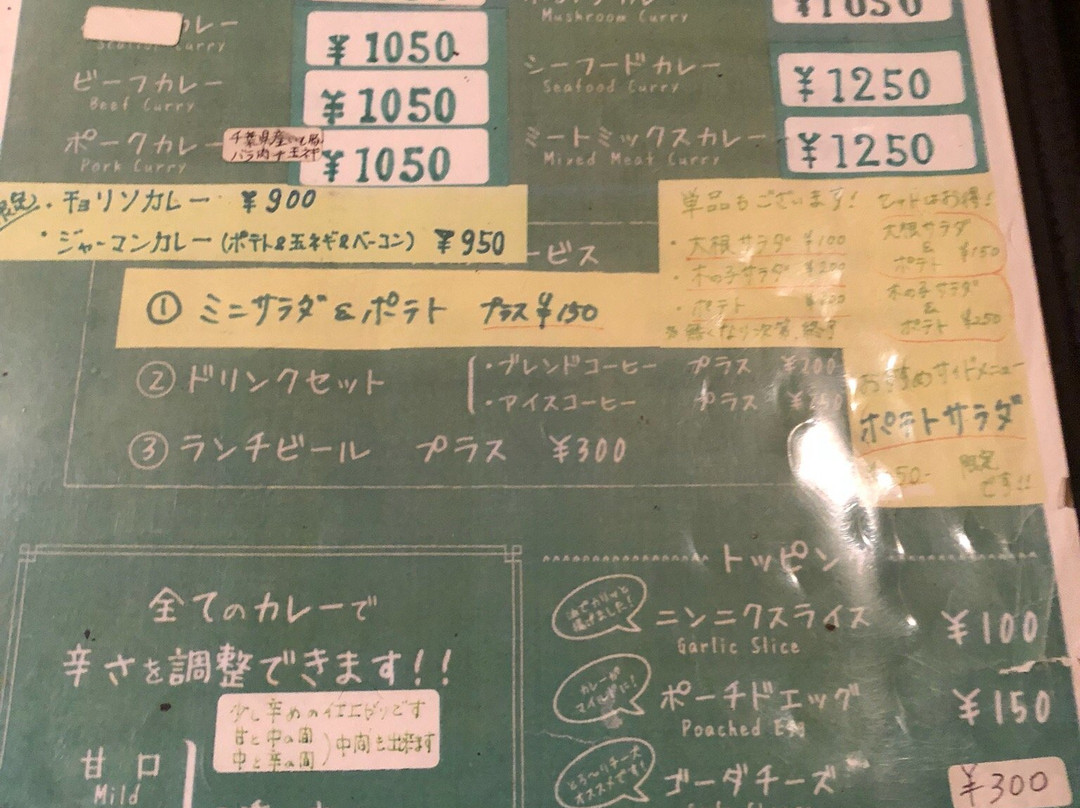 カレー
Curry
¥1050
ビーフカレー
Beef Curry
¥1050
ポークカレー
Pork Curry
千葉県産
バラ肉
¥1050
Mushroom Curry
¥1050
シーフードカレー
Seafood Curry
¥1250
ミートミックスカレー
Mixed Meat Curry
¥1250
限定
・チョリソカレー ¥900
・ジャーマンカレー(ポテト&玉ネギ&ベーコン) ¥950
ービス
① ミニサラダ&ポテト プラス¥150
② ドリンクセット
・ブレンドコーヒー プラス ¥200
・アイスコーヒー プラス
③ ランチビール プラス ¥300
単品もございます!
・大根サラダ ¥100
・木の子サラダ ¥200
・ポテト
※無くなり次第、終了
セットはお得!
大根サラダ
&
ポテト ¥150
木の子サラダ
&
ポテト ¥250
おすすめサイドメニュー
ポテトサラダ
限定
です!!
全てのカレーで
辛さを調整できます!!
少し辛めの仕上がりです
甘と中の間
中と辛の間
中間も出来ます
甘口
Mild
トッピン
油でカリッと
揚げました!
ニンニクスライス
Garlic Slice
¥100
カレーが
マイルドに!
ポーチドエッグ
Poached Egg
¥150
とろ〜りチーズ
オススメです!
ゴーダチーズ
¥300